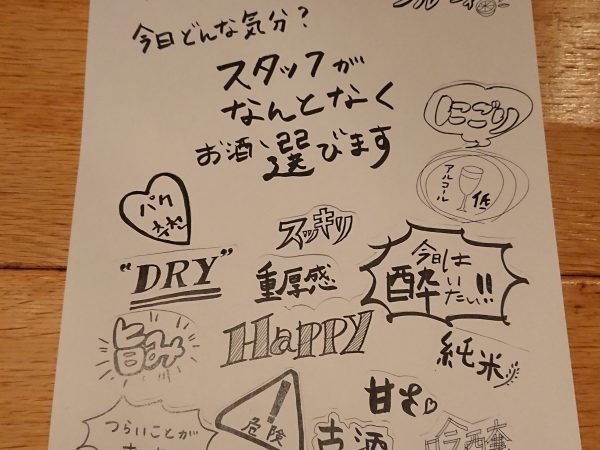 今日どんな気分？
スタッフが
なんとなく
お酒、選びます
にごり
アルコール
低
パケ
スッキリ
"DRY"
重厚感
今日は
酔いたい!!
旨み
HAPPY
純米
甘さ♡
!
危険
古酒
つらいことが